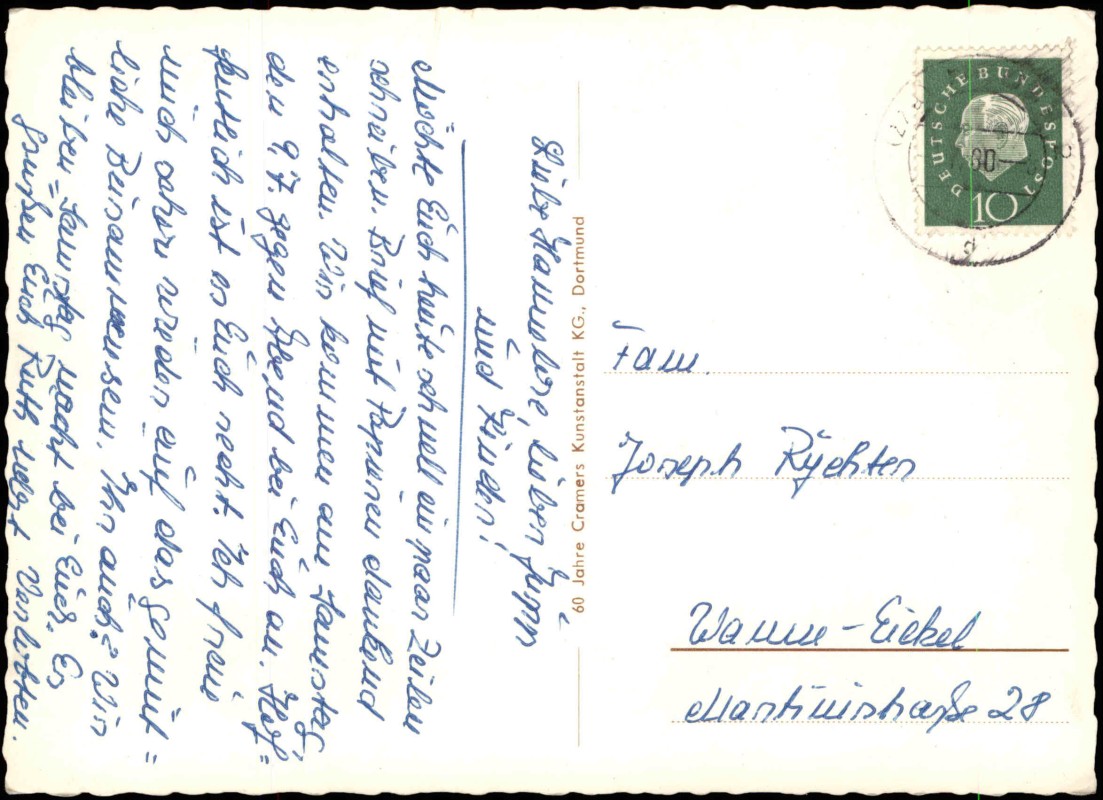 Liebe Hannelore, lieber Jupp
und Kinder!
Möchte Euch heute schnell ein paar Zeilen
schreiben. Brief mit Papieren dankend
erhalten. Wir kommen am Samstag,
den 9.7. gegen Abend bei Euch an. Hof=
fentlich ist es Euch recht. Ich freue
mich sehr wieder auf das gemüt=
liche Beisammensein. Ihr auch? Wir
bleiben Samstag Nacht bei Euch. Es
Grüßen Euch Ruth nebst Verlobten.
60 Jahre Cramers Kunstanstalt KG., Dortmund
DEUTSCHE BUNDESPOST
10
60
Fam.
Joseph Rÿchter
Wanne-Eickel
Martinistraße 28